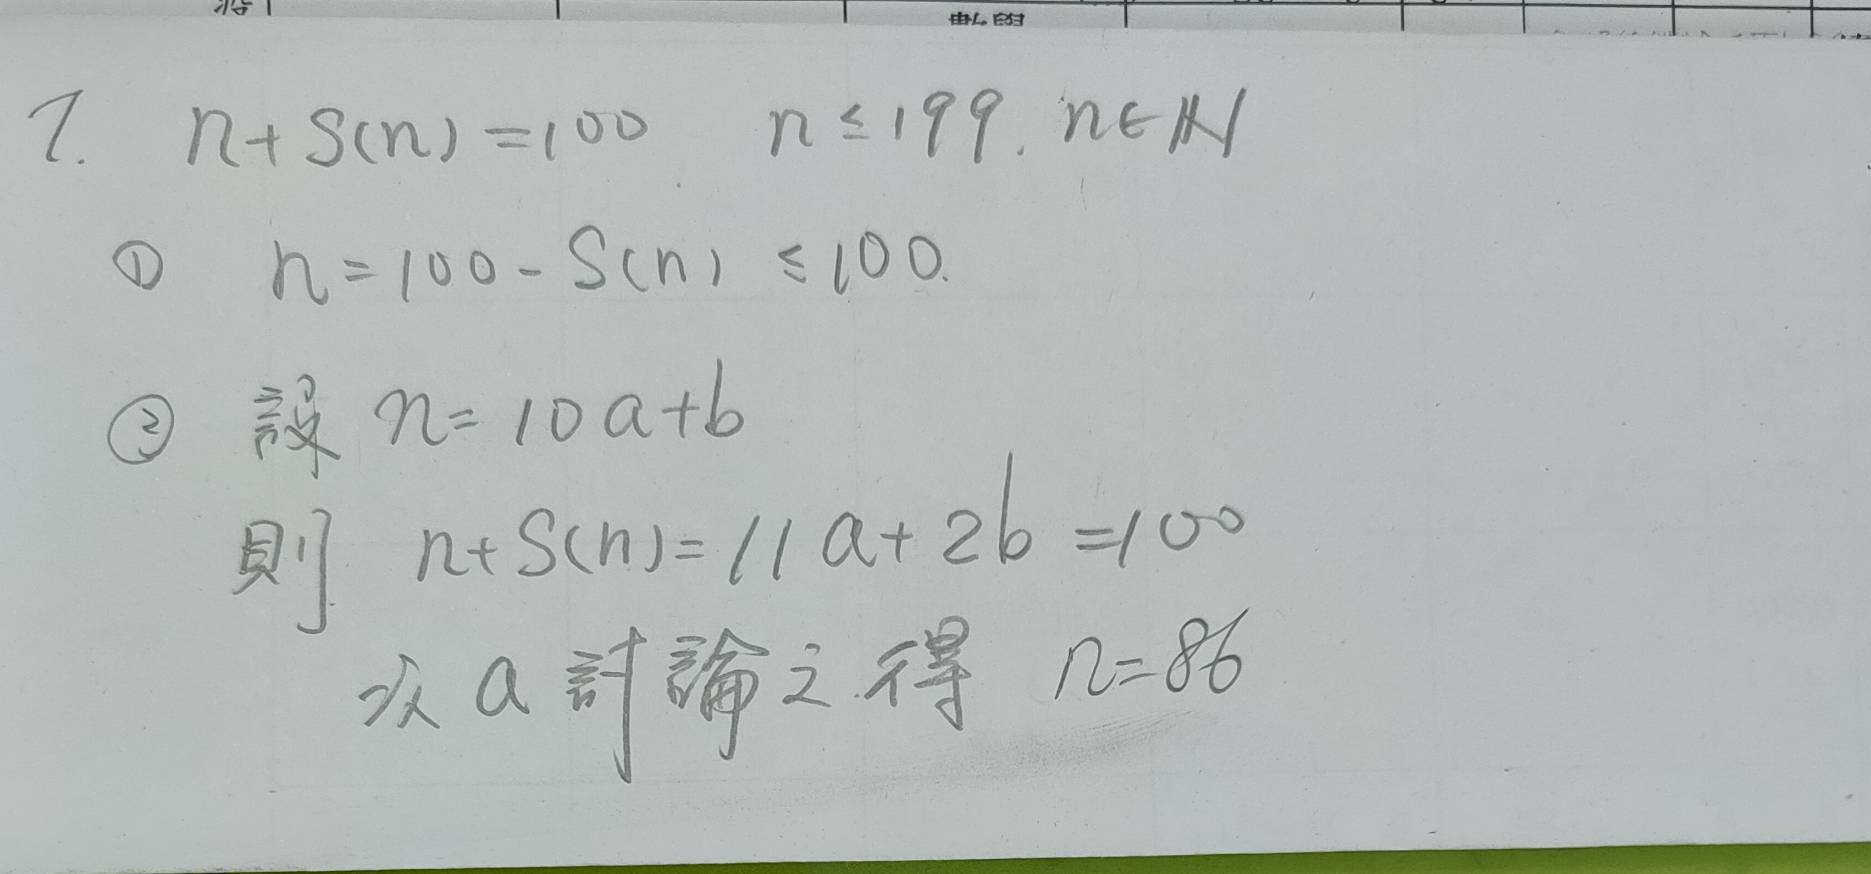 1. n+S(n)=100 n≤199. n∈ℕ
① n=100-S(n) ≤100.
② 設 n=10a+b
則 n+S(n)=11a+2b=100
次 a 討論之得 n=86